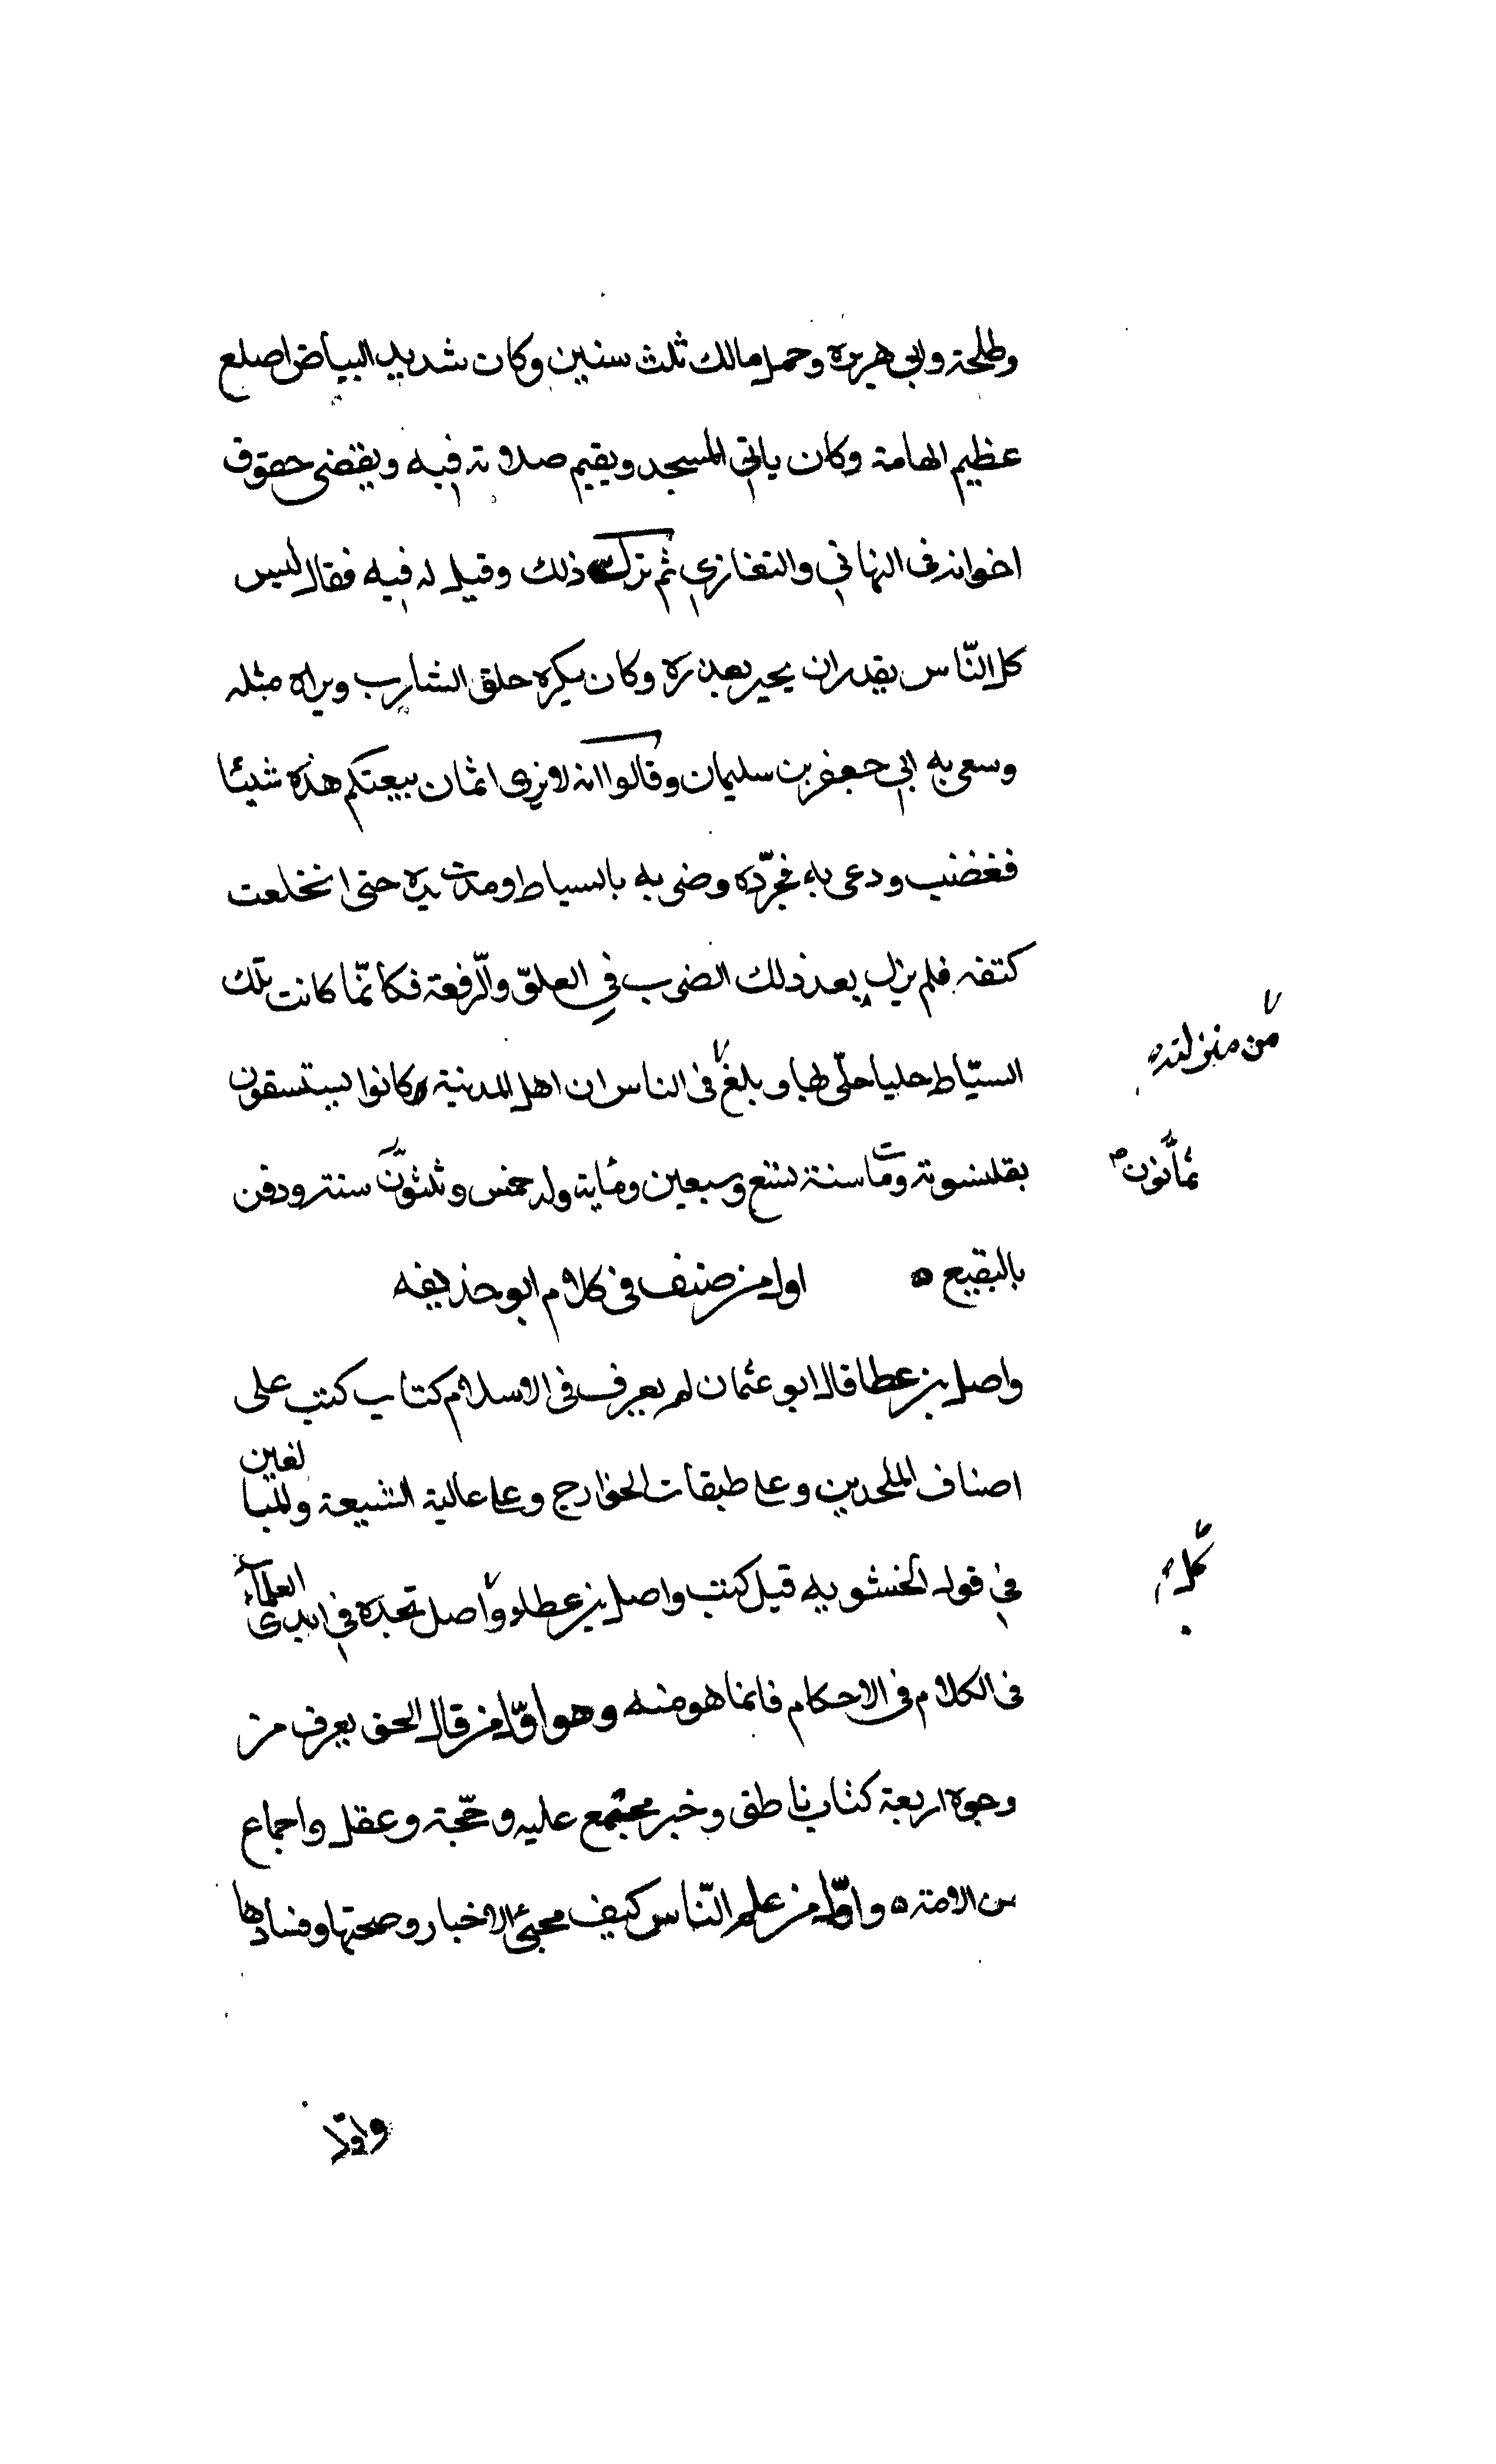 وطلحة وابي هريرة وحمل مالك ثلث سنين وكان شديد البياض اصلع
عظيم الهامة وكان ياتي المسجد ويقيم صلاته فيه ويقضى حقوق
اخوانه فى التهاني والتعازي ثم ترك ذلك وقيل له فيه فقال ليس
كل النّاس يقدر ان يخبر بعذره وكان يكره حلق الشارب ويراه مثله
وسعى به الي جعفر بن سليمان وقالوا انه لا يرى ايمان بيعتكم هذه شيئا
فغضب ودعى به فجرّده وضربه بالسياط ومدت يده حتى انخلعت
كتفه فلم يزل بعد ذلك الضرب في العلوّ والرّفعة فكانّما كانت تلك
السّياط حليا حلّى بها وبلغ فى الناس ان اهل المدينة كانوا يستسقون
من منزلته
بقلنسوته ومات سنة تسع وسبعين ومائة وله خمس وثلثون سنة ودفن
ثمانون
بالبقيع ه اول من صنف فى كلام ابو حذيفه
واصل بن عطا قال ابو عثمان لم يعرف فى الاسلام كتاب كتب على
اصناف الملحدين وعلى طبقات الخوارج وعلى غالية الشيعة والمتبا
لغين
في قول الحشويه قبل كتب واصل بن عطاء واصل تجده في ايدي العلماء
كل
فى الكلام فى الاحكام فانما هو منه وهو اوّل من قال الحق يعرف من
وجوه اربعة كتاب ناطق وخبر مجتمع عليه وحجّة وعقل واجماع
من الامة ه واوّل من علم النّاس كيف مجيئ الاخبار وصحتها وفسادها
واوّل